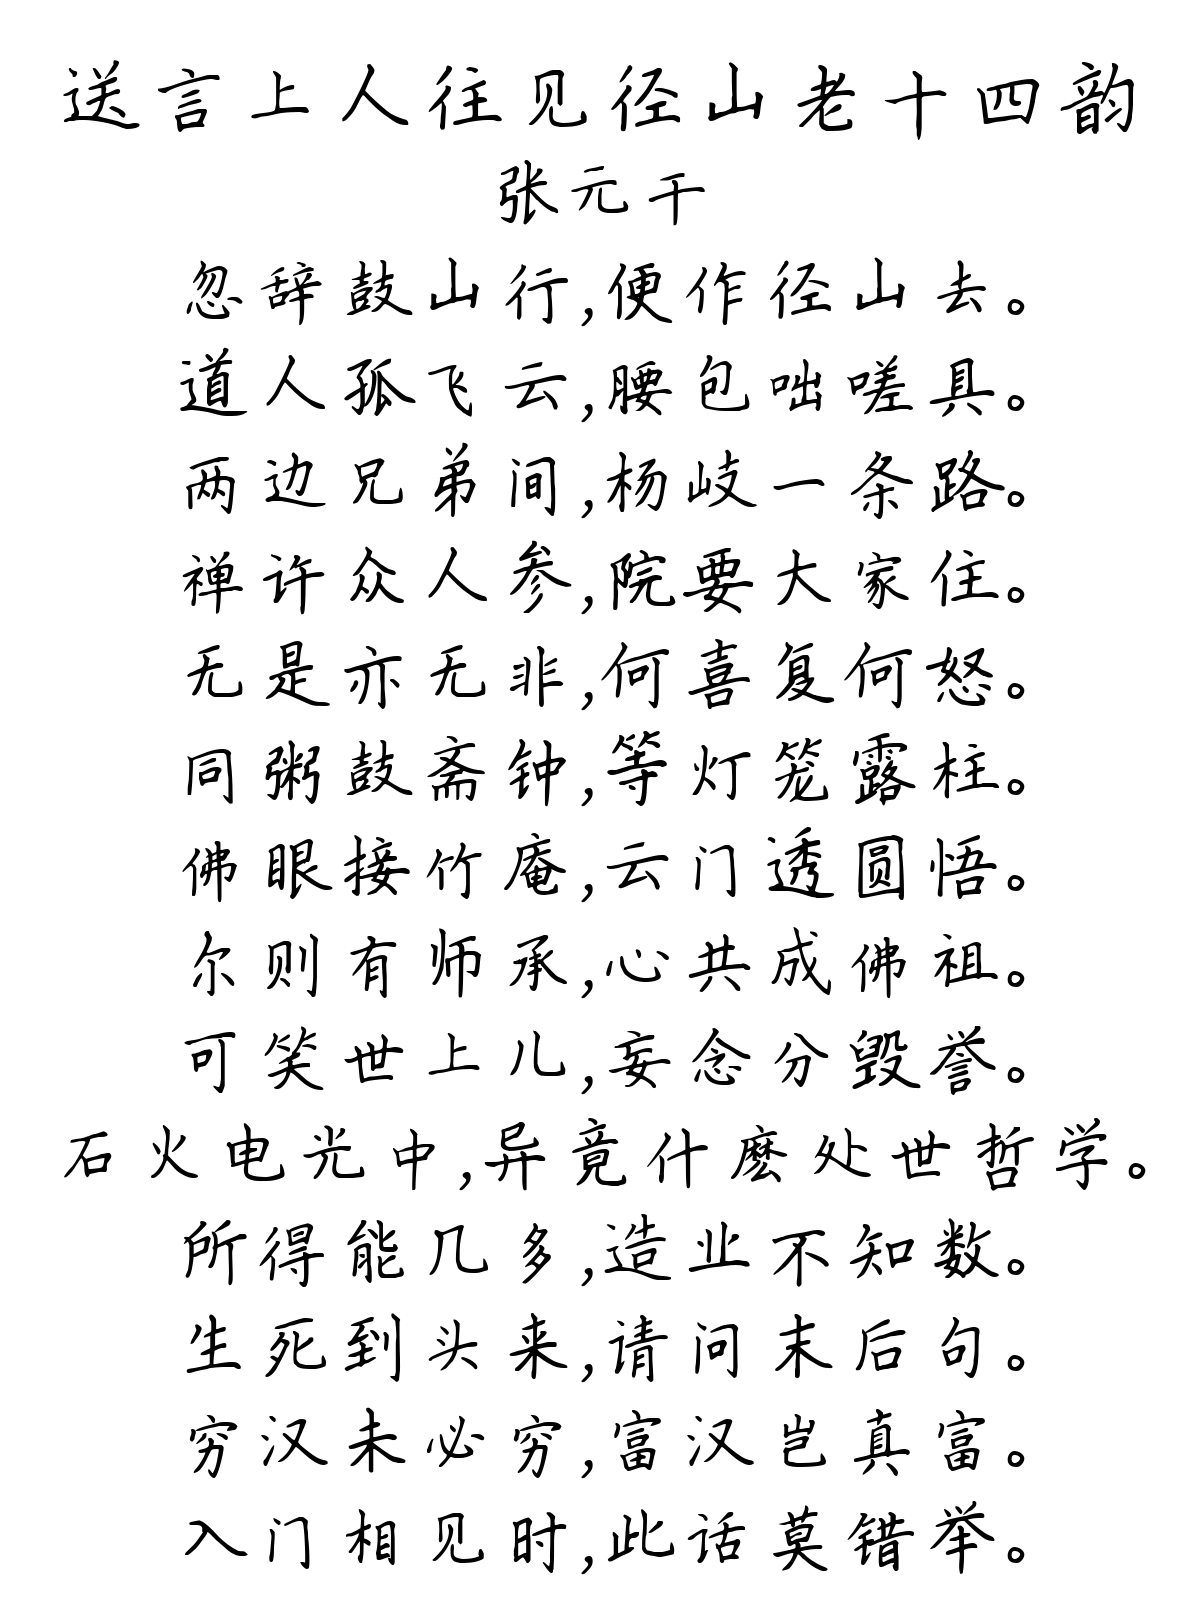 送言上人往见径山老十四韵
张元干
忽辞鼓山行,便作径山去。
道人孤飞云,腰包咄嗟具。
两边兄弟间,杨岐一条路。
禅许众人参,院要大家住。
无是亦无非,何喜复何怒。
同粥鼓斋钟,等灯笼露柱。
佛眼接竹庵,云门透圆悟。
尔则有师承,心共成佛祖。
可笑世上儿,妄念分毁誉。
石火电光中,异竟什麽处世哲学。
所得能几多,造业不知数。
生死到头来,请问末后句。
穷汉未必穷,富汉岂真富。
入门相见时,此话莫错举。